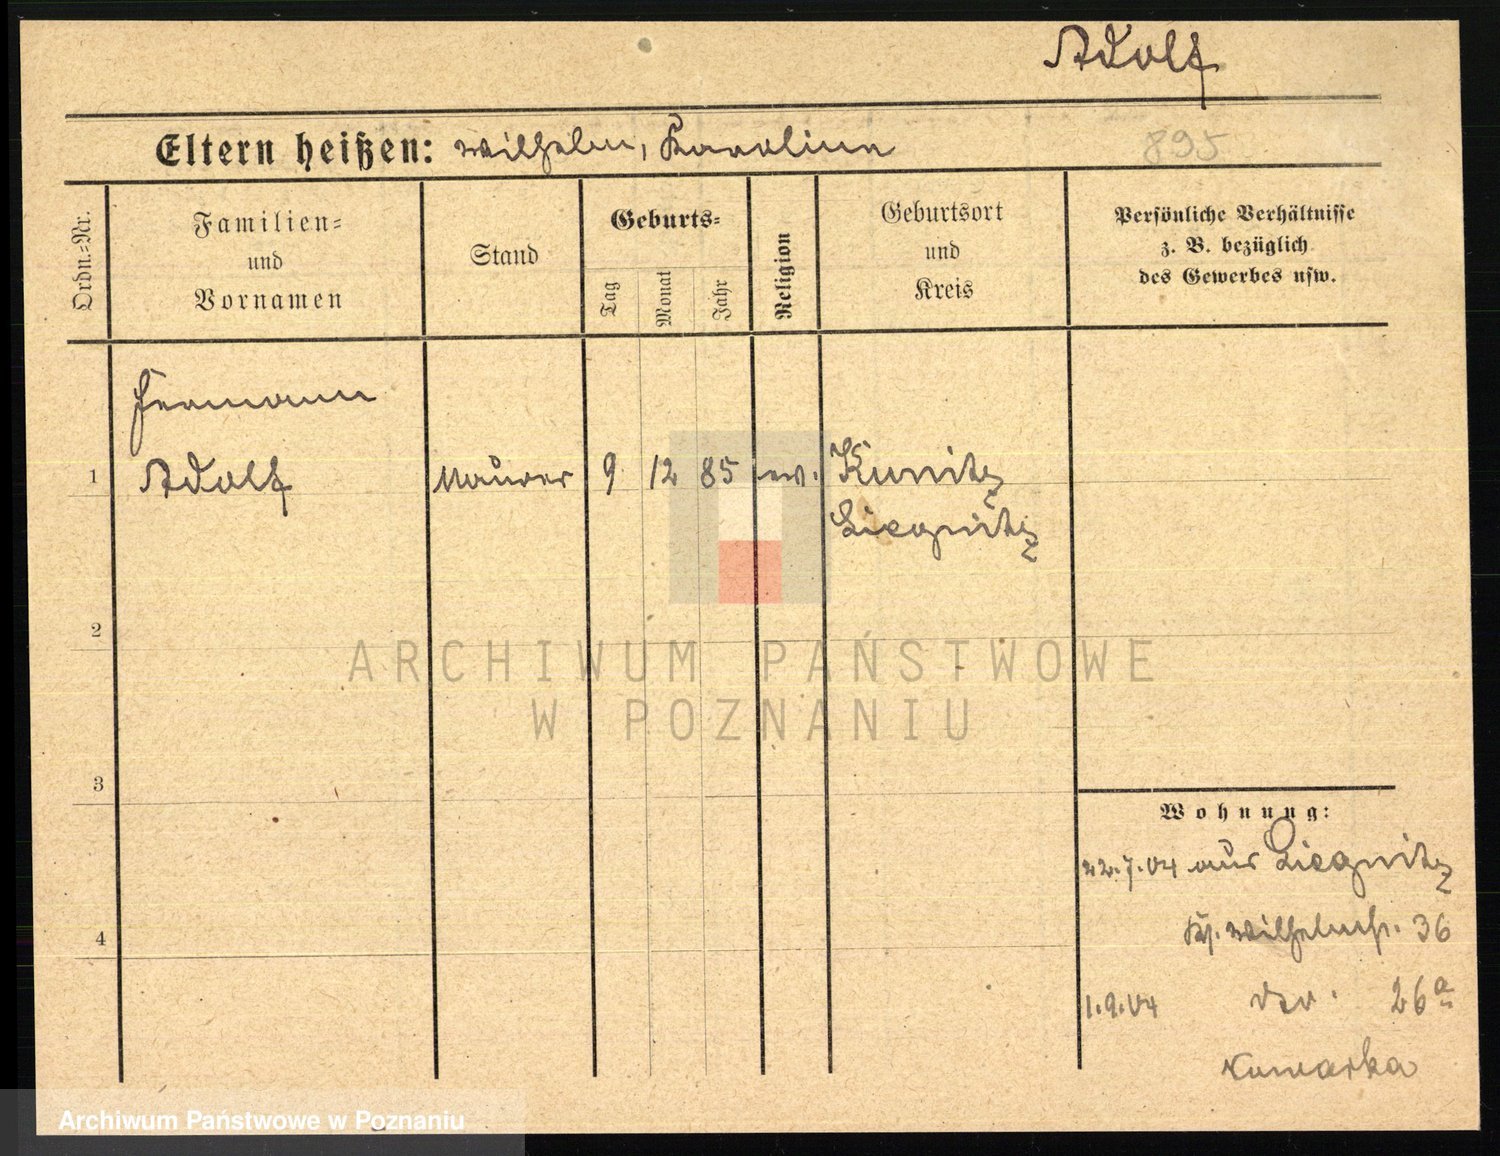 Adolf
Eltern heißen: Wilhelm, Karoline
895
Ordn.=Nr.
Familien=
und
Vornamen
Stand
Geburts=
Tag
Monat
Jahr
Religion
Geburtsort
und
Kreis
Persönliche Verhältnisse
z. B. bezüglich
des Gewerbes usw.
Hermann
1 Adolf Maurer 9 12 85 ev. Kunitz
Liegnitz
2
ARCHIWUM PAŃSTWOWE
W POZNANIU
3
Wohnung:
22.7.04 aus Liegnitz
4
Wilhelmstr. 36
1.9.04 26a
Archiwum Państwowe w Poznaniu